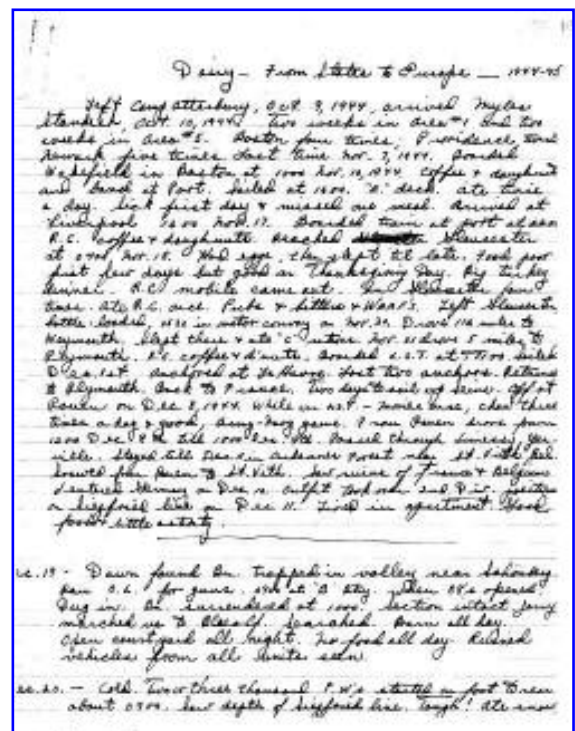 Diary — From States to Europe — 1944-45
Left Camp Atterbury, Oct. 9, 1944, arrived Myles
Standish, Oct. 10, 1944. Two weeks in area #1 and two
weeks in area #5. Boston four times, Providence twice
Newark five times. Last time Nov. 7, 1944. Boarded
Wakefield in Boston at 1000 Nov. 10, 1944. Coffee & doughnuts
and band at Port. Sailed at 1500. "B" deck, ate twice
a day. Sick first day & missed one meal. Arrived at
Liverpool 1600 Nov. 17. Boarded train at port at
R.C. coffee & doughnuts. Reached Gloucester
at 0400 Nov. 18. Had eggs, then slept til late. Food poor
first few days but good on Thanksgiving Day. Big turkey
dinner. R.C. mobile came out. In Gloucester four
times. Ate R.C. once. Picks & bitters & WAAF'S. Left Gloucester
in motor convoy on Nov. 30. Drove 116 miles to
Weymouth. Slept there & ate "C" rations. drove 5 miles to
Plymouth. R.C. coffee & d'nuts. Boarded L.S.T. at sailed
Dec. 1st. Anchored at Le Havre. Lost two anchors. Returned
to Plymouth. Back to France. Two days to sail up Seine. Off at
Rouen on Dec. 8, 1944. While on L.S.T. — movies, chow three
times a day & good, game. From Rouen drove from
1200 Dec. till 1000 Dec. Passed through
Stayed till Dec. in Ardennes Forest near St. Vith
from Rouen to St. Vith. Saw ruins of France & Belgium
& entered Germany on Dec. outfit took over 2nd Div. position
in Siegfried line on Dec. 11. Lived in apartment. Good
food & little activity.
Dec. 19 — Dawn found Bn. trapped in valley near Schonberg
for guns. at "B" Btry. when 88's opened.
Dug in. Bn. surrendered at 1000. Section intact. Jerry
marched us to Bleialf. Searched. all day.
Open courtyard all night. No food all day. Ruined
vehicles from all units seen.
Dec. 20. — Cold. Two or three thousand P.W's started on foot to rear
about 0700. Saw depth of Siegfried line. Tough! Ate snow